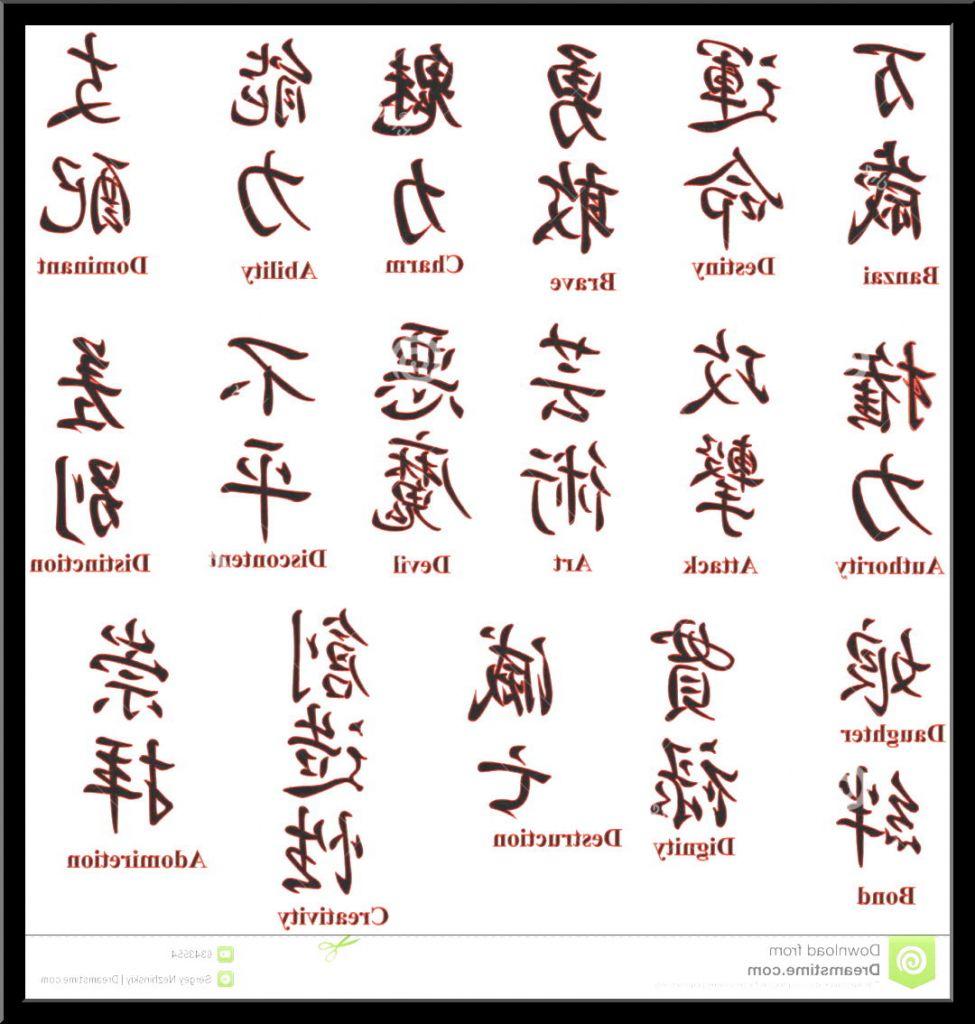 万歳
Banzai
運命
Destiny
勇敢
Brave
魅力
Charm
能力
Ability
支配
Dominant
権力
Authority
攻撃
Attack
芸術
Art
悪魔
Devil
不平
Discontent
差別
Distinction
娘
Daughter
絆
Bond
貫禄
Dignity
滅亡
Destruction
創造性
Creativity
崇拝
Adomiretion
Download from
Dreamstime.com
Sergey Nezhinskiy | Dreamstime.com